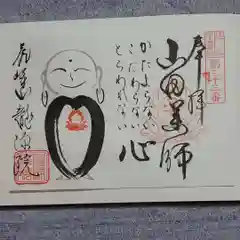 奉拝
第三十三番
山田薬師
かたよらない
こだわらない
とらわれない
心
龍源院